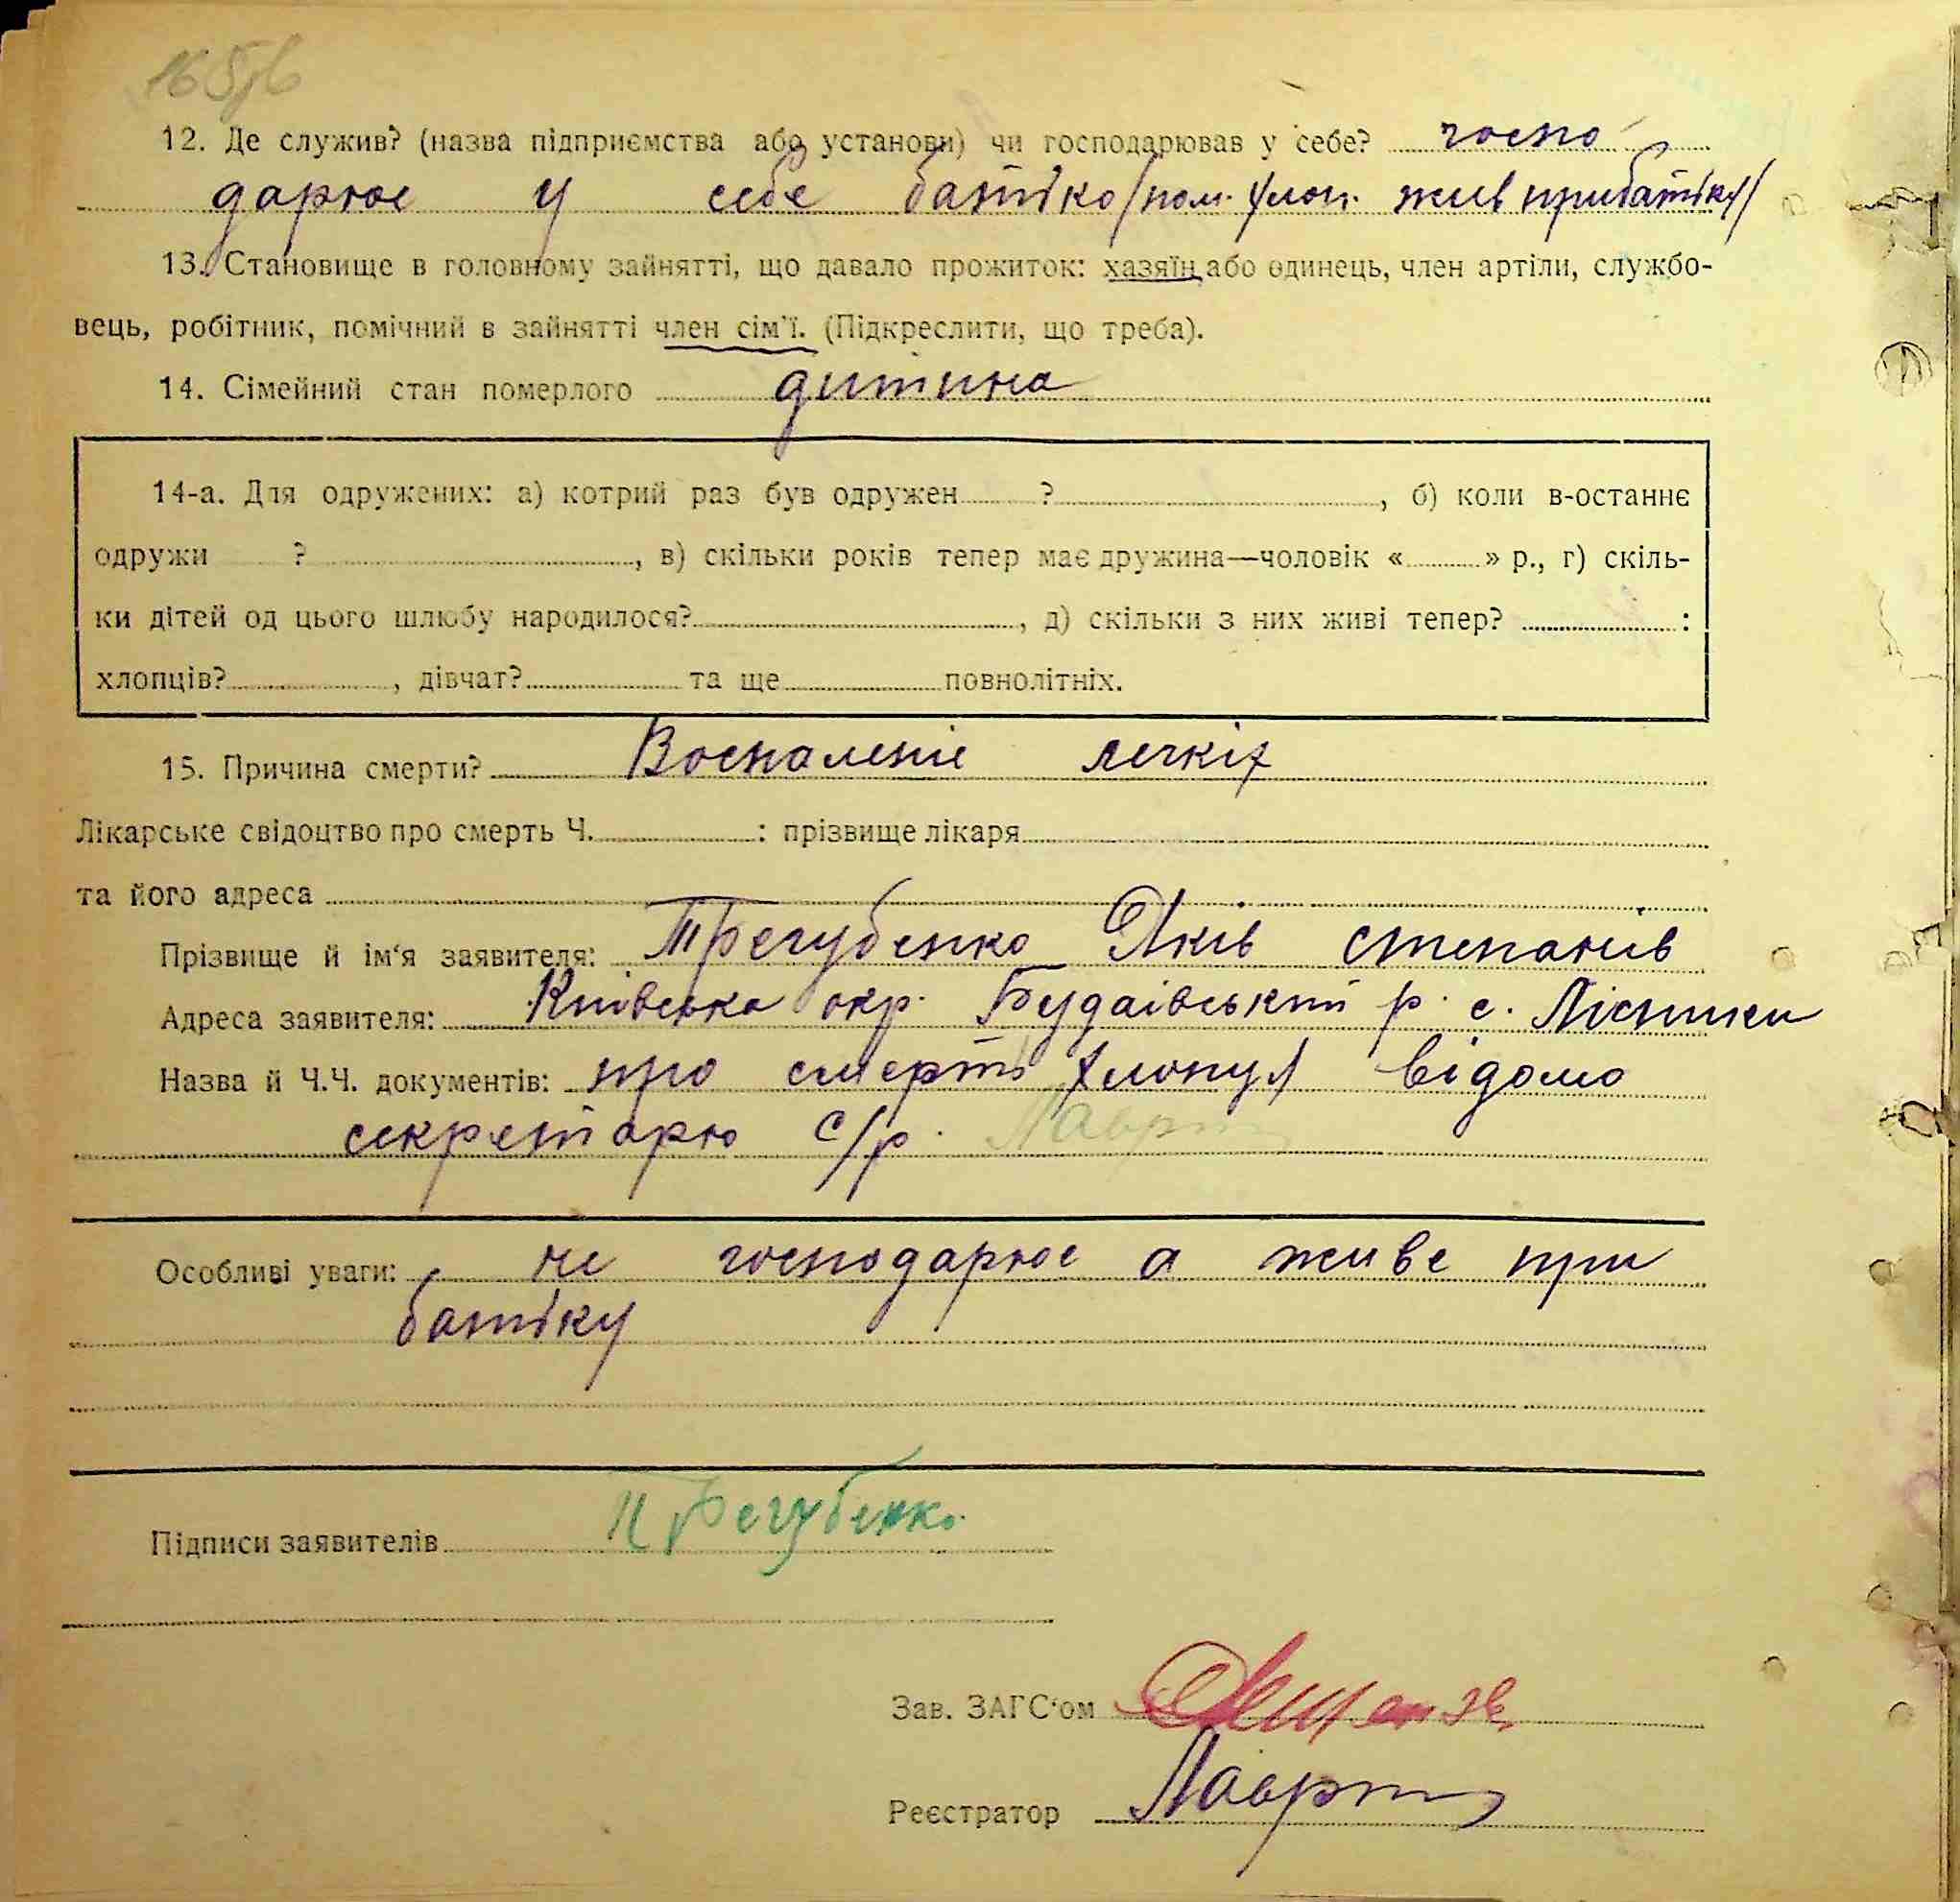 12. Де служив? (назва підприємства або установи) чи господарював у себе? госпо
дарює у себе батько /пом. хлоп. жив при батьку/
13. Становище в головному зайнятті, що давало прожиток: хазяїн або одинець, член артіли, службо-
вець, робітник, помічний в зайнятті член сім'ї. (Підкреслити, що треба).
14. Сімейний стан померлого дитина
14-а. Для одружених: а) котрий раз був одружен ? , б) коли в-останнє
одружи ? , в) скільки років тепер має дружина—чоловік « » р., г) скіль-
ки дітей од цього шлюбу народилося? , д) скільки з них живі тепер? :
хлопців? , дівчат? та ще повнолітніх.
15. Причина смерти? Воспаленіе легкіх
Лікарське свідоцтво про смерть Ч. : прізвище лікаря
та його адреса
Прізвище й ім'я заявителя: Трегубенко Яків Степанів
Адреса заявителя: Київська окр. Будаівський р. с. Лісники
Назва й Ч.Ч. документів: про смерть хлопця відомо
секретарю с/р.
Особливі уваги: не господарює а живе при
батьку
Підписи заявителів Трегубенко
Зав. ЗАГС'ом
Реєстратор